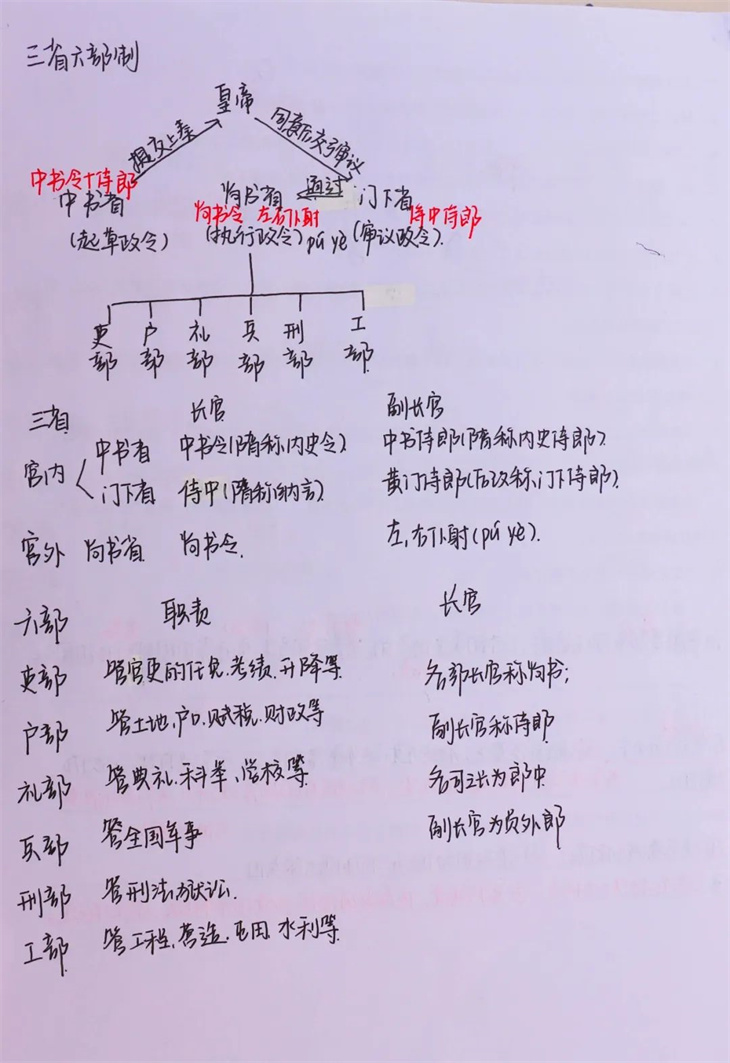 三省六部制
皇帝
提交上奏
同意后交予审议
中书令+侍郎
中书省 尚书省 通过 门下省
尚书令 左右仆射 侍中侍郎
(起草政令) (执行政令) pú yè (审议政令).
吏部 户部 礼部 兵部 刑部 工部
三省 长官 副长官
宫内 中书省 中书令(隋称内史令) 中书侍郎(隋称内史侍郎)
门下省 侍中(隋称纳言) 黄门侍郎(后改称门下侍郎)
宫外 尚书省 尚书令 左,右仆射(pú yè).
六部 职责 长官
吏部 管官吏的任免.考绩.升降等 各部长官称尚书;
户部 管土地,户口.赋税.财政等 副长官称侍郎
礼部 管典礼.科举、学校等 各司之长为郎中
兵部 管全国军事 副长官为员外郎
刑部 管刑法.狱讼.
工部 管工程,营造.屯田.水利等